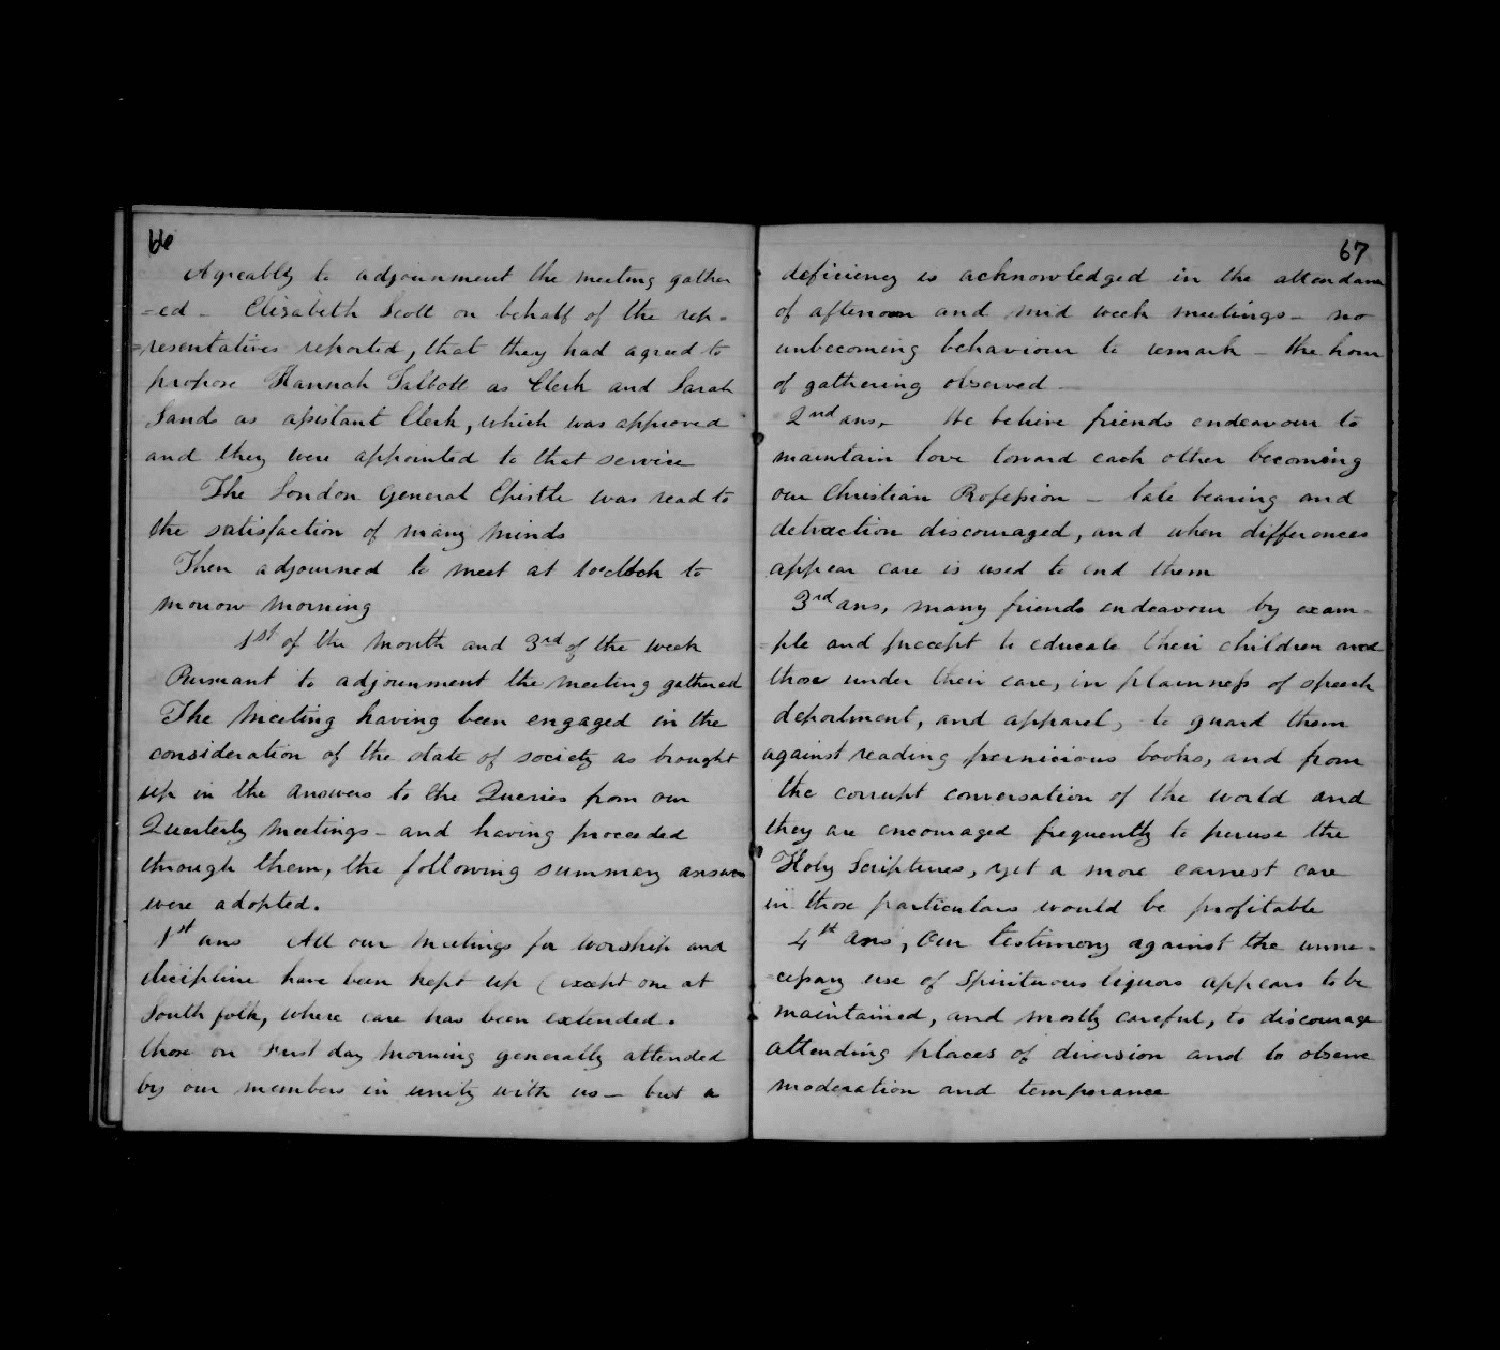 66
Agreably to adjournment the meeting gather
=ed - Elizabeth Scott on behalf of the rep-
=resentatives reported, that they had agreed to
propose Hannah Talbott as Clerk and Sarah
Sands as assistant Clerk, which was approved
and they were appointed to that service
The London General Epistle was read to
the satisfaction of many minds
Then adjourned to meet at 10 oclock to
morrow morning
1st of the month and 3rd of the week
Pursuant to adjournment the meeting gathered
The Meeting having been engaged in the
consideration of the state of society as brought
up in the answers to the Queries from our
Quarterly Meetings - and having proceeded
through them, the following summary answers
were adopted.
1st ans All our Meetings for worship and
discipline have been kept up (except one at
South folk, where care has been extended.
those on First day Morning generally attended
by our members in unity with us - but a
67
deficiency is acknowledged in the attendance
of afternoon and mid week meetings - no
unbecoming behaviour to remark - the hour
of gathering observed -
2nd ans, - We believe friends endeavour to
maintain love toward each other becoming
our Christian Profession - tale bearing and
detraction discouraged, and when differences
appear care is used to end them
3rd ans, many friends endeavour by exam-
=ple and precept to educate their children and
those under their care, in plainness of speech
deportment, and apparel, to guard them
against reading pernicious books, and from
the corrupt conversation of the world and
they are encouraged frequently to peruse the
Holy Scriptures, yet a more earnest care
in those particulars would be profitable
4th Ans, Our testimony against the unne-
=cessary use of Spirituous liquors appears to be
maintained, and mostly careful, to discourage
attending places of diversion and to observe
moderation and temperance